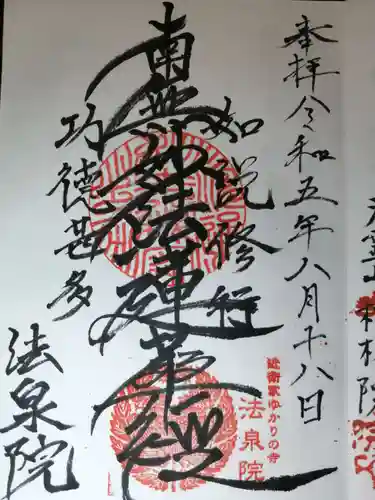 奉拝令和五年八月十八日
如説修行
南無妙法蓮華経
功徳甚多
法泉院
近衛家ゆかりの寺
法泉院